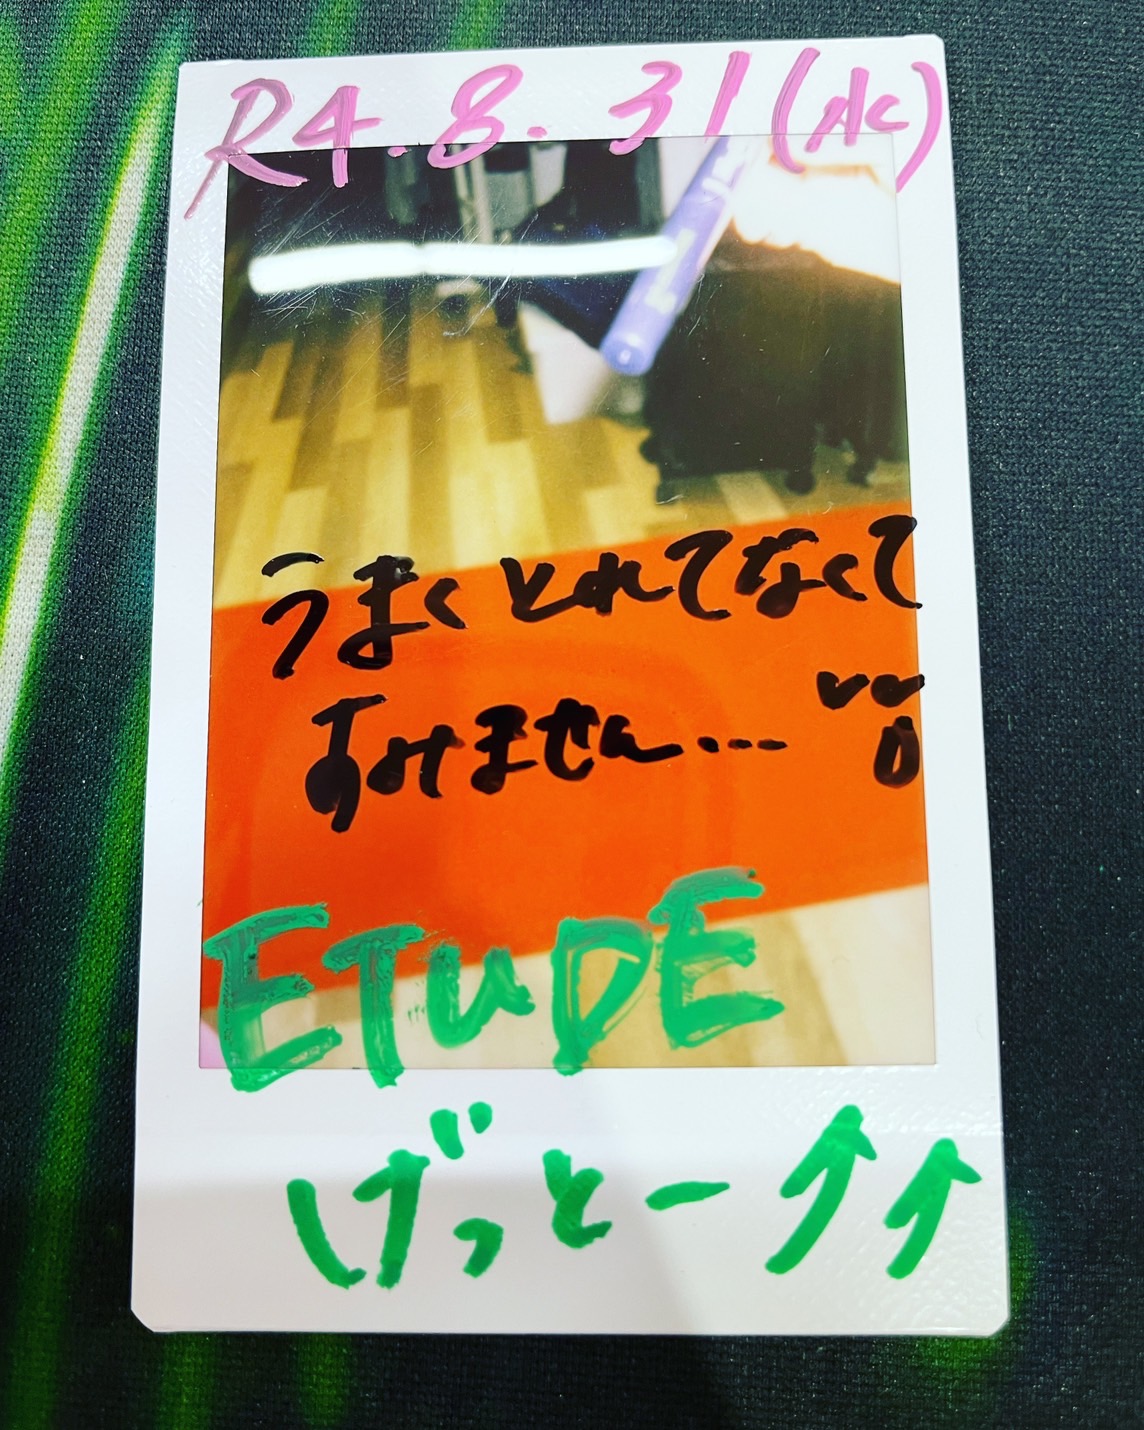 R4.8.31(水)
うまくとれてなくて
すみません...
ETUDE
げっとー↑↑